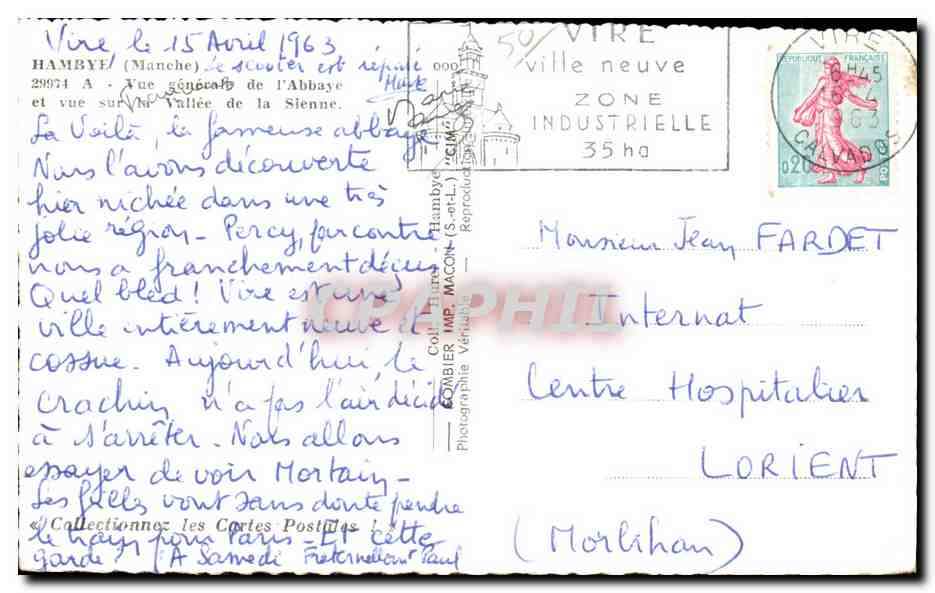 Vire, le 15 Avril 1963
HAMBYE (Manche) Le scooter est réparé
29974 A - Vue générale de l'Abbaye
et vue sur la Vallée de la Sienne.
La Voilà, la fameuse abbaye,
Nous l'avons découverte
hier nichée dans une très
jolie région - Percy, par contre
nous a franchement déçus
Quel bled! Vire est une
ville entièrement neuve et
cossue. Aujourd'hui, le
crachin n'a pas l'air décidé
à s'arrêter. Nous allons
essayer de voir Mortain -
Les filles vont sans doute prendre
« Collectionnez les Cartes Postales ! »
le train pour Paris - Et cette
garde? (A Samedi Fraternellement Paul
Coll. Huret - Hambye
COMBIER IMP. MACON (S.-et-L.) "CIM"
Photographie Véritable - Reproduction
50
VIRE
ville neuve
ZONE
INDUSTRIELLE
35 ha
VIRE
6H45
1963
CALVADOS
REPUBLIQUE FRANÇAISE
0,20
CPAPHIL
Monsieur Jean FARDET
Internat
Centre Hospitalier
LORIENT
(Morbihan)